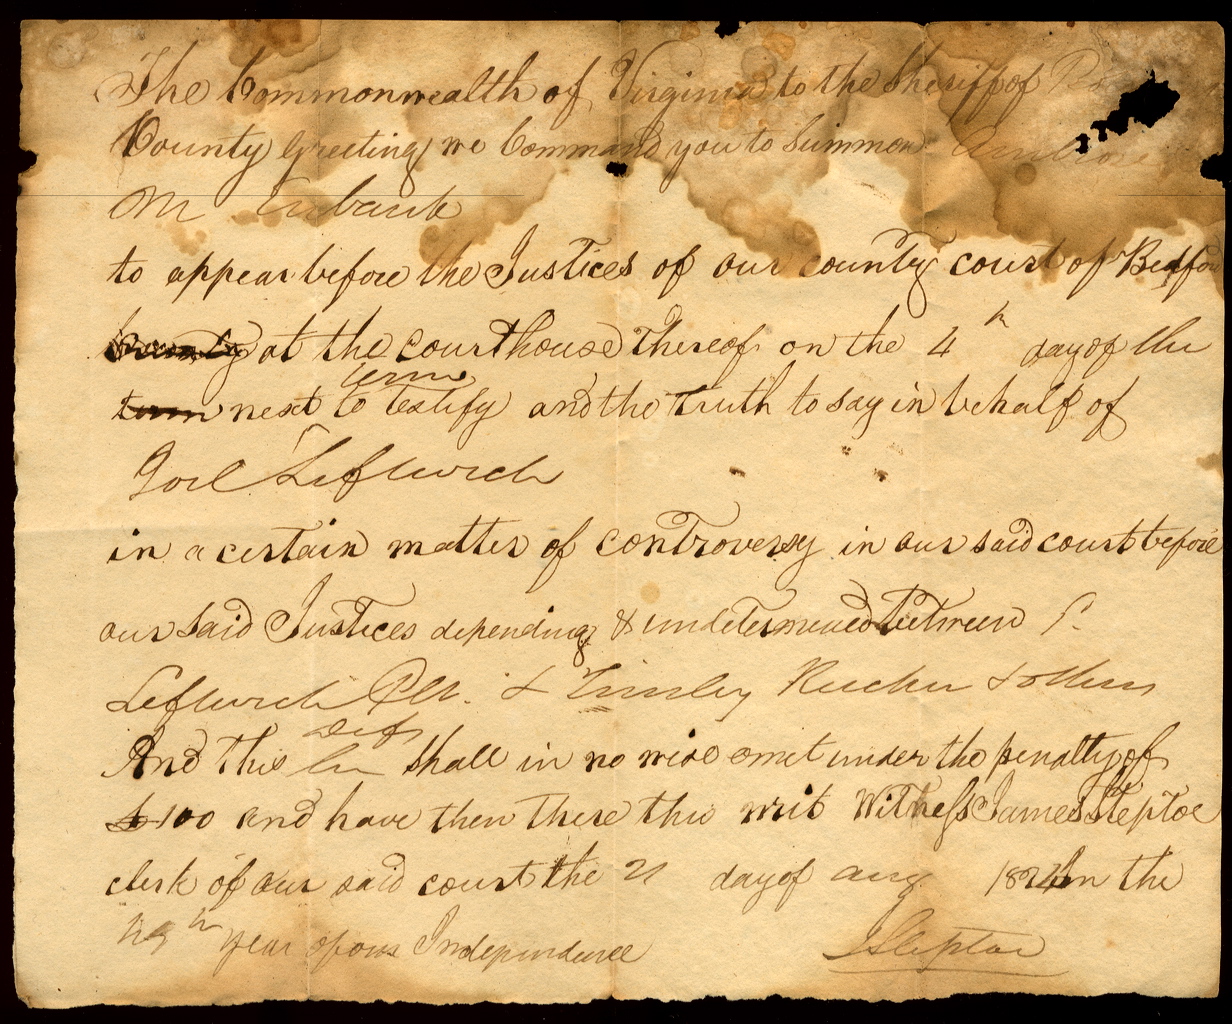 The Commonwealth of Virginia to the Sheriff of
County Greeting we Command you to Summon
M Eubank
to appear before the Justices of our county court of Bedford
County at the courthouse Thereof on the 4th day of the
term
term next to testify and the truth to say in behalf of
Joel Leftwich
in a certain matter of controversy in our said court before
our said Justices depending & undetermined between
Leftwich Plt. & Tinsley Rucker & others
Defts
And this he shall in no wise omit under the penalty of
$100 and have then there this writ Witness James Steptoe
clerk of our said court the 21 day of aug 1824 in the
49th year of our Independence
J Steptoe